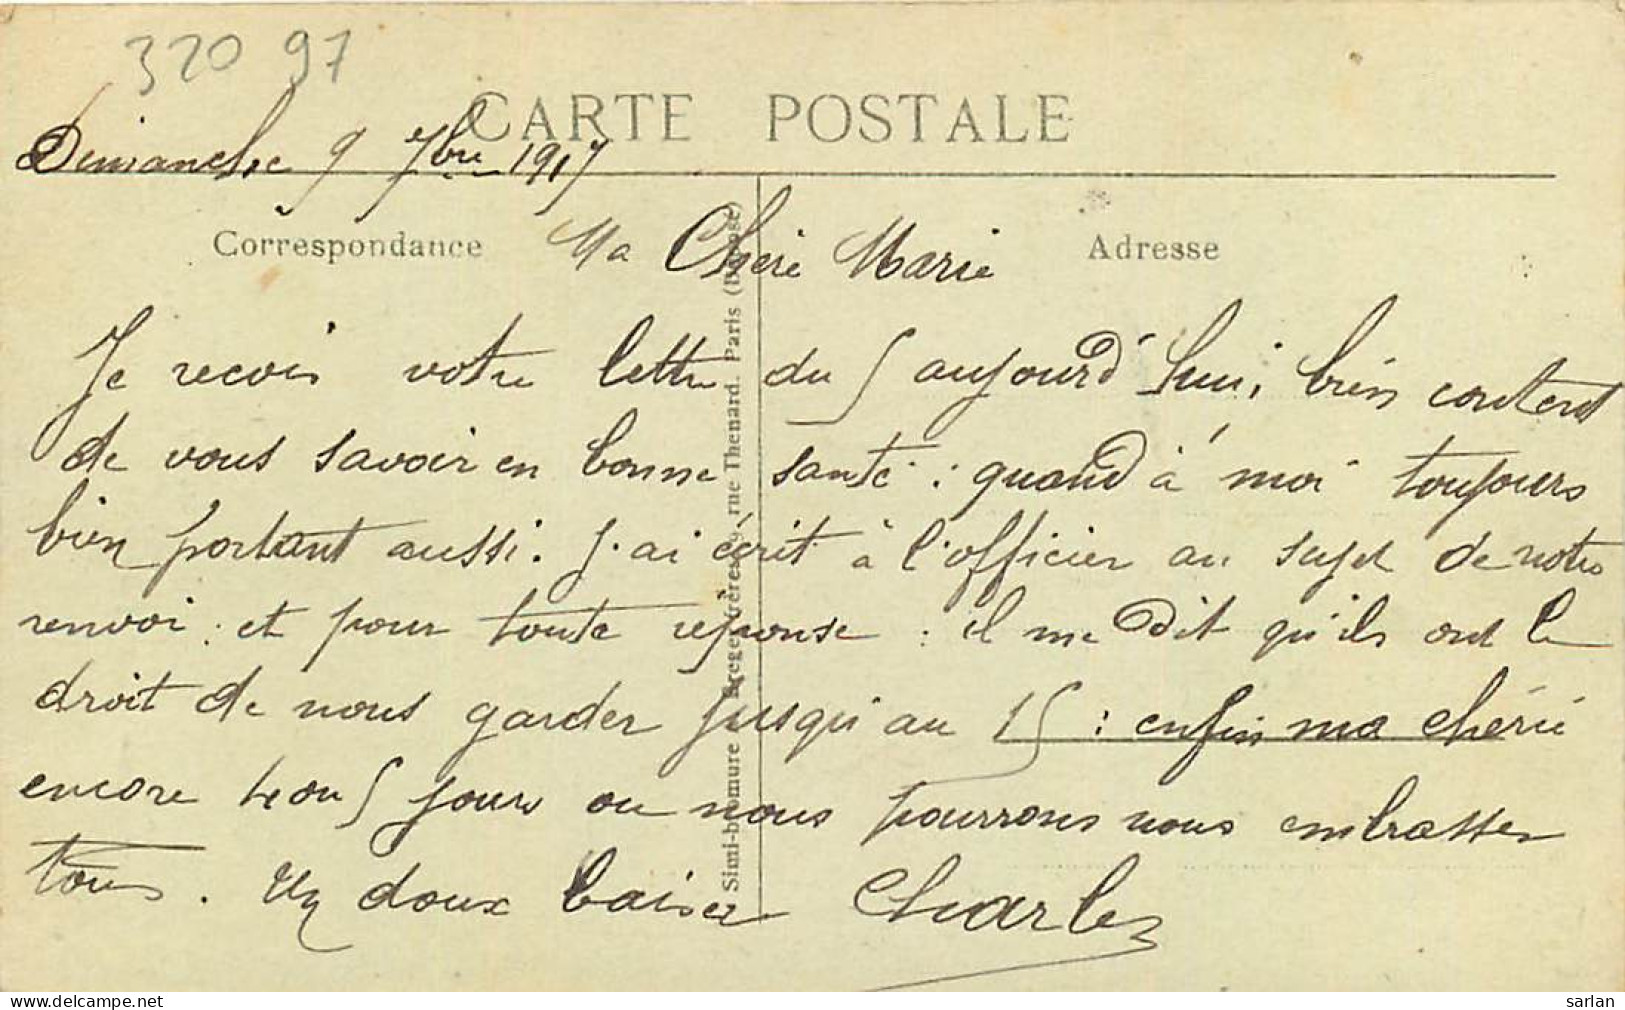 320 97
CARTE POSTALE
Dimanche 9 7bre 1917
Correspondance
Adresse
Ma Chere Marie
Je recois votre lettre du 5 aujourd'hui, bien content
de vous savoir en bonne santé : quand à moi toujours
bien portant aussi. J'ai écrit à l'officier au sujet de notre
renvoi : et pour toute reponse : il me dit qu'ils ont le
droit de nous garder jusqu'au 15 : enfin ma chérie
encore 4 ou 5 jours ou nous pourrons nous embrasser
tous. Un doux baiser Charles
Simi-bromure Breger frères, 9, rue Thenard. Paris
sarlan